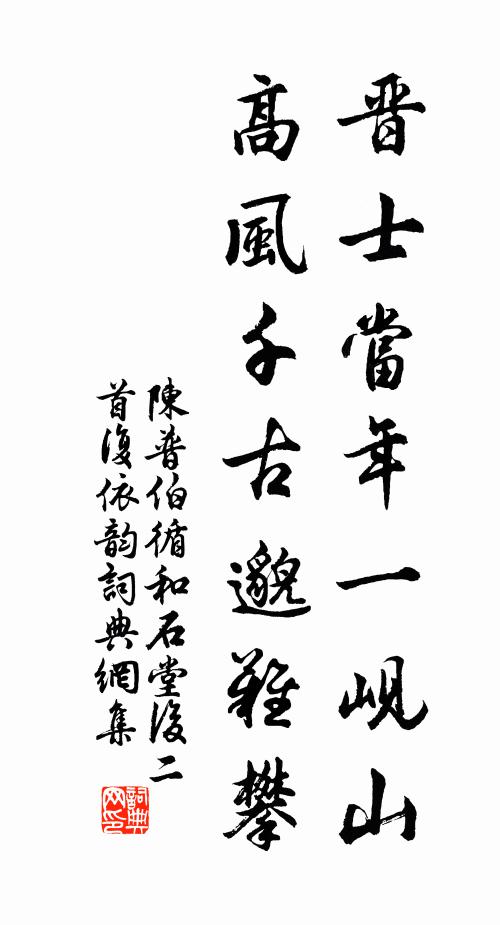 晋士當年一峴山
高風千古邈難攀
陳普伯循和石堂後二
首復依韵詞典網集
詞典网印